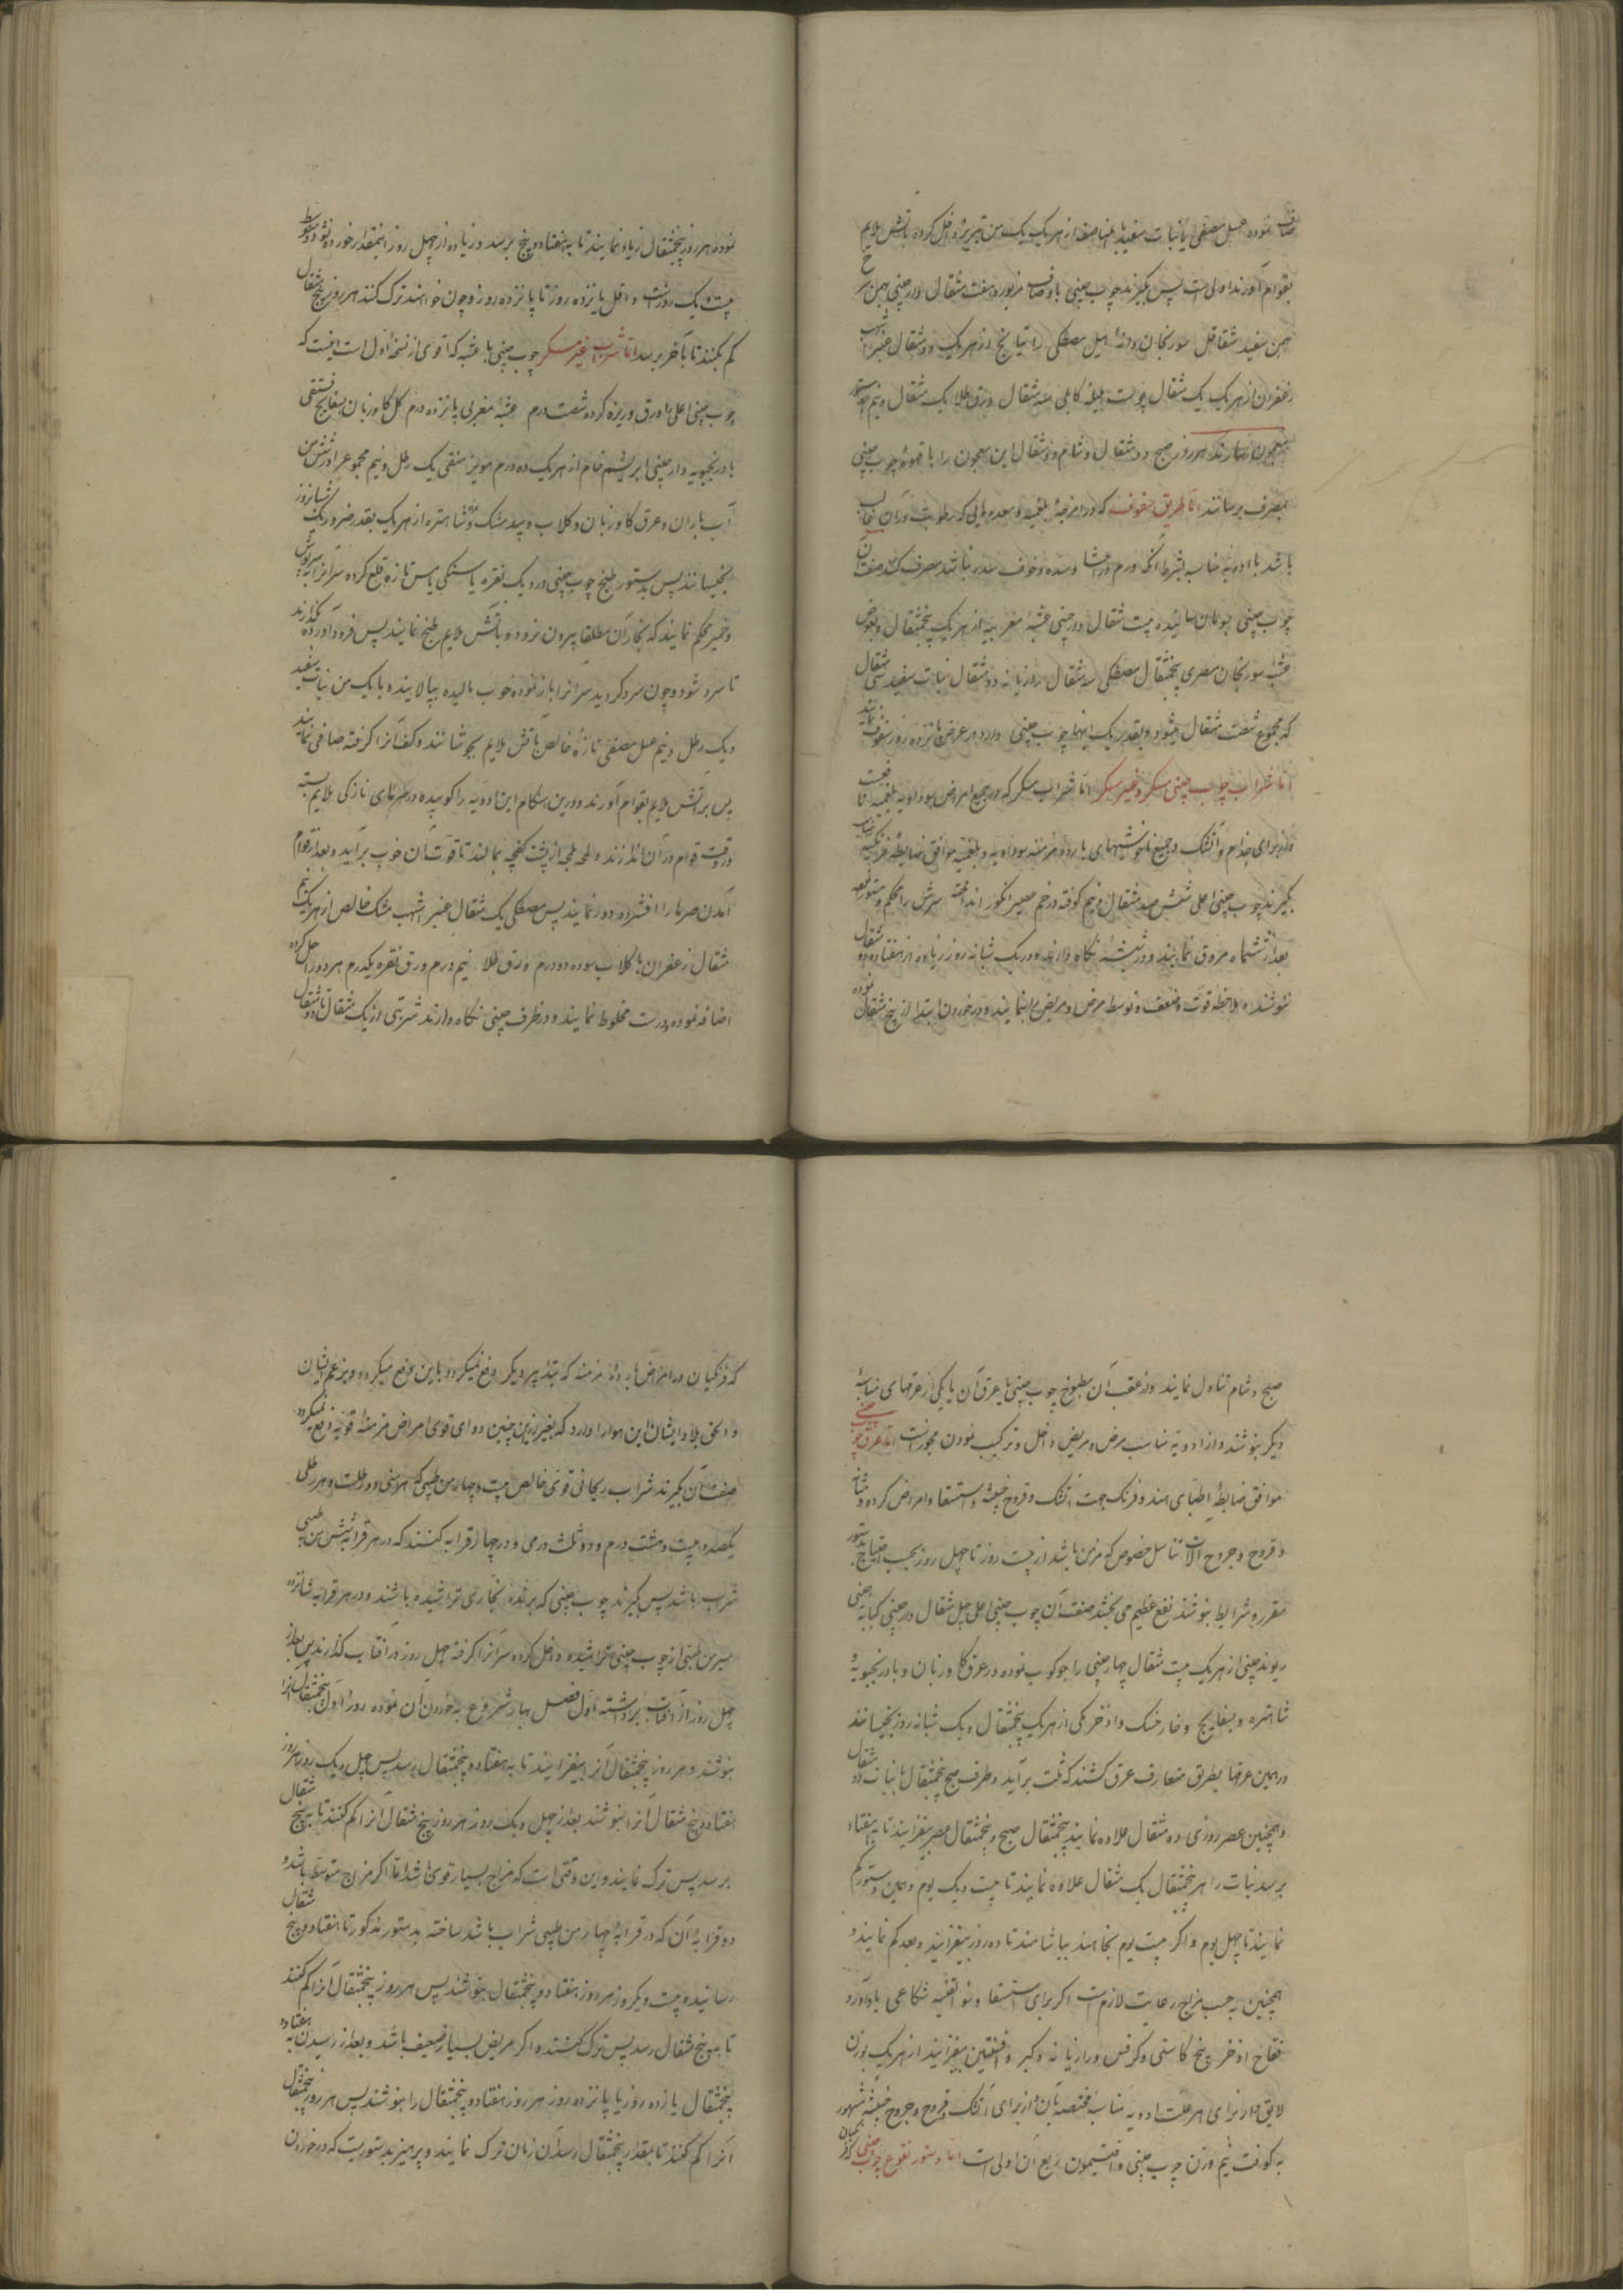 صاف نموده عسل مصفی یا نبات سفید بالمناصفه از هر یک یک من تبریز داخل کرده باتش ملایم
بقوام آورند اولی است پس بگیرند چوب چینی باوصاف مزبوره هفت مثقال دارچینی بهمن سرخ
بهمن سفید شقاقل سورنجان دانهٔ هیل مصطکی رازیانج از هر یک دو مثقال عنبر اشهب
زعفران از هر یک یک مثقال پوست هلیله کابلی سه مثقال ورق طلا یک مثقال و نیم بدستور
معجون سازند هر روز صبح دو مثقال و شام دو مثقال این معجون را با قهوهٔ چوب چینی
بمصرف رسانند اما طریق سفوف که در امزجهٔ بلغمیه و معده هایی که رطوبت در آن غالب
باشد با ادویه مناسبه بشرط آنکه ورم در احشا و سده و خوف سدد نباشد مصرف کنند صفت آن
چوب چینی سوهان سائیده بیست مثقال دارچینی عشبهٔ مغربیه از هر یک پنجمثقال و بعوض
عشبه سورنجان مصری پنجمثقال مصطکی سه مثقال رازیانه دو مثقال نبات سفید سی مثقال
که مجموع شصت مثقال میشود و بقدر یک اینها چوب چینی دارد در عرض پانزده روز سفوف نمایند
اما شراب چوب چینی مسکر و غیر مسکر اما شراب مسکر که در جمیع امراض سوداویه و بلغمیه نافعست
و از برای جذام و آتشک و جمیع ناخوشیهای بارده مزمنه سوداویه و بلغمیه موافق ضابطهٔ فرنگیه
بگیرند چوب چینی اعلی شش صد مثقال و نیم کوفته در خم عصیر انگور انداخته سرش را محکم و
بعد از ششماه مروق نمایند و در شیشه نگاه دارند و در یک شبانه روز زیاده از هفتاد و دو مثقال
ننوشند و ملاحظه قوت و ضعف و توسط مرض و مریض را بنمایند و در خوردن ابتدا از پنج مثقال نموده
نموده هر روز پنجمثقال زیاد نمایند تا به هفتاد و پنج برسد و زیاده از چهل روز اینمقدار خورده نشود و وسط
بیست و یک روز است و اقل یازده روز تا پانزده روز و چون خواهند ترک کنند هر روز پنج مثقال
کم بکنند تا باخر برسد اما شراب غیر مسکر چوب چینی با عشبه که اقوی از نسخهٔ اول است اینست که
چوب چینی اعلی را ورق و ریزه کرده شصت درم عشبهٔ مغربی پانزده درم گل گاوزبان بسفایج فستقی
بادرنجبویه دارچینی ابریشم خام از هر یک ده درم مویز منقی یک رطل و نیم مجموع را در شش من
آب باران و عرق گاوزبان و گلاب و بیدمشک و شاهتره از هر یک بقدر ضرور یک شبانروز
بخیسانند پس بدستور طبخ چوب چینی در دیک نقره یا سنگی یا مس تازه قلع کرده سر آنرا بسرپوش
و خمیر محکم نمایند که بخار آن مطلقا بیرون نرود و باتش ملایم طبخ نمایند پس فرود آورده بگذارند
تا سرد شود و چون سرد گردید سر آنرا باز نموده خوب مالیده بپالایند و با یک من نبات سفید
و یک رطل و نیم عسل مصفی تازهٔ خالص باتش ملایم بجوشانند و کف آنرا گرفته صافی نمایند
پس بر آتش ملایم بقوام آورند و درین هنگام این ادویه را کوبیده در صره‌های نازکی ملایم بسته
در وقت قوام در آن اندازند و لمحه بلمحه از پشت کفچه بمالند تا قوت آن خوب برآید و بعد از قوام
آمدن صره‌ها را افشرده دور نمایند پس مصطکی یک مثقال عنبر اشهب مشک خالص از هر یک نیم
مثقال زعفران با گلاب سوده دو درم ورق طلا نیم درم ورق نقره یکدرم هر دو را حل کرده
اضافه نموده درست مخلوط نمایند و در ظرف چینی نگاه دارند شربتی از یک مثقال تا دو مثقال
صبح و شام تناول نمایند و از عقب آن مطبوخ چوب چینی یا عرق آن یا یکی از عرقهای مناسبهٔ
دیگر بنوشند و از ادویه مناسب مرض و مریض داخل و ترکیب نمودن مجوز است اما عرق چوب چینی
موافق ضابطهٔ اطبای هند و فرنگ جهت آتشک و قروح خبیثه و استسقا و امراض کرده و مثانه
و قروح و جروح آلات تناسل خصوص که مزمن باشد از بیست روز تا چهل روز بحسب احتیاج بدستور
مقرر و شرایط بنوشند نفع عظیم می بخشد صفت آن چوب چینی اعلی چهل مثقال دارچینی کبابه چینی
ریوند چینی از هر یک بیست مثقال چهار چینی را جوکوب نموده در عرق گاوزبان و بادرنجبویه و
شاهتره و بسفایج و خارخسک و اذخر مکی از هر یک پنجمثقال و یک شبانه روز بخیسانند
در همین عرقها بطریق متعارف عرق کشند که ثلث برآید و طرف صبح پنجمثقال با نبات دو مثقال
و همچنین عصر روزی ده مثقال علاوه نمایند پنجمثقال صبح و پنجمثقال عصر بیفزایند تا به هفتاد
برسد نبات را هر پنجمثقال یک مثقال علاوه نمایند تا بیست و یک یوم و بهمین دستور کم
نمایند تا چهل یوم و اگر بیست یوم بخواهند بیاشامند تا ده روز بیفزایند و بعد کم نمایند و
همچنین بحسب مزاج رعایت لازم است اگر برای استسقا و سوءالقنیه شکاعی بادآورد
فقاح اذخر بیخ کاسنی و کرفس و رازیانه و کبر و افسنتین بیفزایند از هر یک بوزن
لایق و از برای هر علت ادویه مناسبهٔ مختصه بآن و از برای آتشک و قروح و جروح خبیثه مشهور
به کوفت نیم وزن چوب چینی و افتیمون ربع آن اولی است اما دستور نقوع چوب چینی
که فرنگیان در امراض باردهٔ مزمنه که بتدابیر دیگر دفع نمیگردد باین دفع میگردد و بزعم ایشان
و الحق بلاد ایشان این هوا را دارد که بغیر ازین چنین دوای قوی امراض مزمنهٔ قویه دفع نمیگردد
صفت آن بگیرند شراب ریحانی قوی خالص بیست و چهار من طبی که هر منی دو رطلست و هر رطلی
یکصد و بیست و هشت درم و دو ثلث درمی و در چهار قرابه کنند که در هر قرابه شش من طبی
شراب باشد پس بگیرند چوب چینی که برندهٔ نجاری تراشیده باشند و در هر قرابه شانزده
سیر من طبی از چوب چینی تراشیده داخل کرده سر آنرا گرفته چهل روز در آفتاب گذارند پس بعد از
چهل روز از آفتاب برداشته اول فصل بهار شروع به خوردن آن نموده روز اول پنجمثقال آنرا
بنوشند و هر روز پنجمثقال آنرا بیفزایند تا به هفتاد و پنجمثقال برسد پس چهل و یک روز هر روز
هفتاد و پنج مثقال آنرا بنوشند بعد از چهل و یک روز هر روز پنج مثقال آنرا کم کنند تا به پنج مثقال
برسد پس ترک نمایند و این وقتی است که مزاج بسیار قوی باشد اما اگر مزاج متوسط باشد
دو قرابهٔ آن که در قرابهٔ چهار من طبی شراب باشد ساخته بدستور مذکور تا هفتاد و پنج مثقال
رسانیده بیست و یکروز هر روز هفتاد و پنجمثقال بنوشند پس هر روز پنجمثقال آنرا کم کنند
تا به پنج مثقال رسد پس ترک کنند و اگر مریض بسیار ضعیف باشد و بعد از رسیدن به هفتاد و
پنجمثقال یازده روز یا پانزده روز هر روز هفتاد و پنجمثقال را بنوشند پس هر روز پنجمثقال
آنرا کم کنند تا بمقدار پنجمثقال رسد آن زمان ترک نمایند و پرهیز بدستوریست که در خوردن